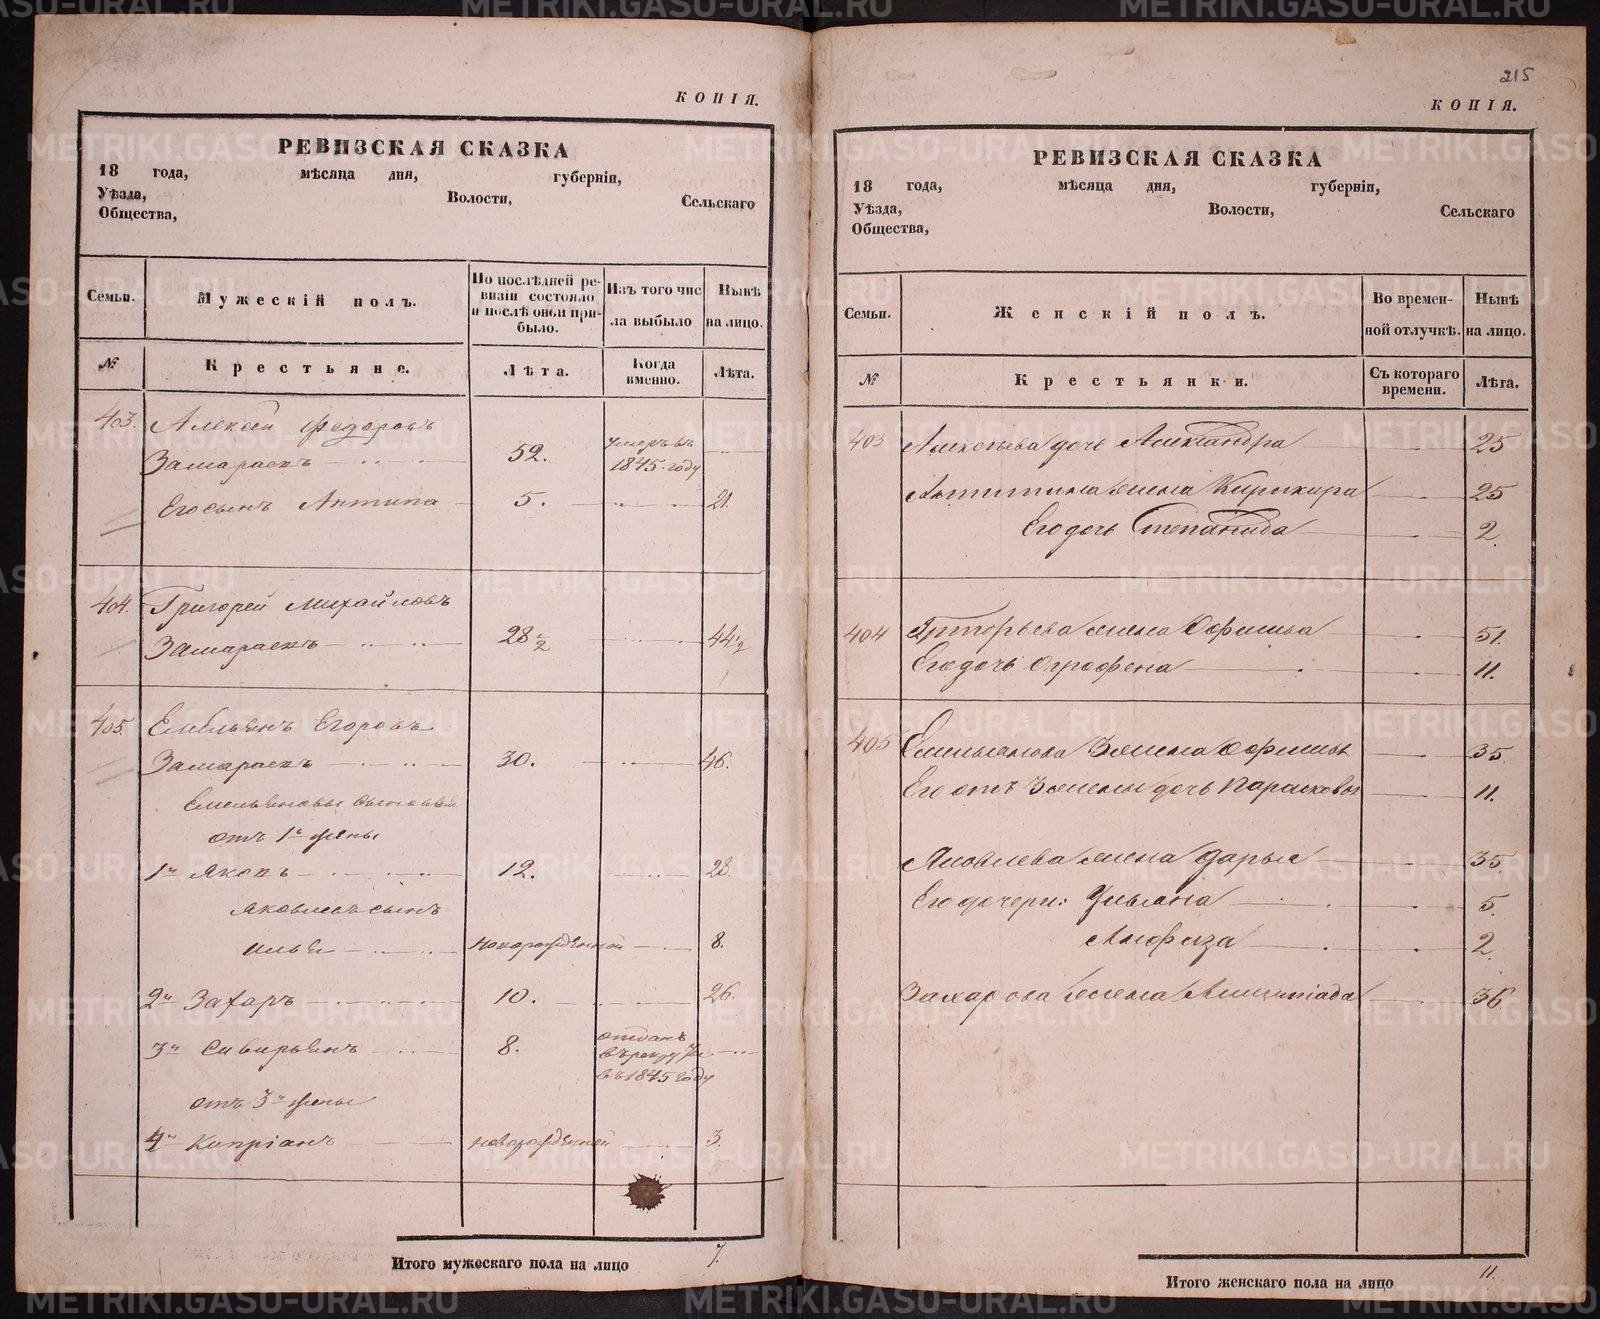 КОПІЯ.
РЕВИЗСКАЯ СКАЗКА
18 года, мѣсяца дня, губерніи,
Уѣзда, Волости, Сельскаго
Общества,
Семьи. Мужескій полъ. По послѣдней ре-визіи состояло и послѣ оной при-было. Изъ того чис ла выбыло Нынѣ на лицо.
№ Крестьяне. Лѣта. Когда именно. Лѣта.
403. Алексѣй Федоровъ
Замараевъ 52. умеръ въ 1845 году
Его сынъ Антипа 5. 21.
404. Григорей Михайловъ
Замараевъ 28 1/2 44 1/2
405. Емельянъ Егоровъ
Замараевъ 30. 46.
Емельяновы сыновья
отъ 1й жены
1й Яковъ 12. 28.
Яковлевъ сынъ
Илья новорожденной 8.
2й Захаръ 10. 26.
3й Сивирьянъ 8. отданъ в рекруты въ 1845 году
отъ 3й жены
4й Кипріанъ новорожденной 3.
Итого мужескаго пола на лицо 7.
215
КОПІЯ.
РЕВИЗСКАЯ СКАЗКА
18 года, мѣсяца дня, губерніи,
Уѣзда, Волости, Сельскаго
Общества,
Семьи. Женскій полъ. Во времен-ной отлучкѣ. Нынѣ на лицо.
№ Крестьянки. Съ котораго времени. Лѣта.
403 Алексѣева дочь Александра 25
Антипина жена 25
Его дочь Степанида 2.
404 Григорьева жена Офимья 51.
Его дочь Огрофена 11.
405 Емельянова 3 жена Офимья 35.
Его отъ 3 жены дочь Парасковья 11.
Яковлева жена Дарья 35.
Его дочери: Ульяна 5.
Анфиза 2.
Захарова жена 36
Итого женскаго пола на лицо 11.
METRIKI.GASO-URAL.RU